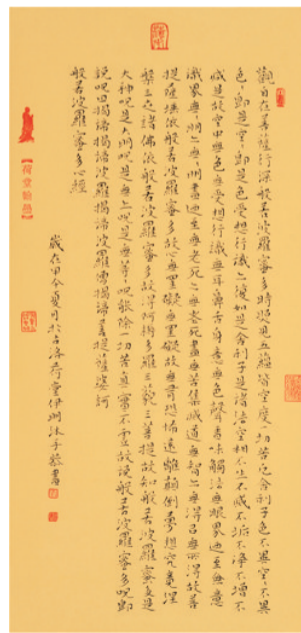 觀自在菩薩行深般若波羅蜜多時照見五蘊皆空度一切苦厄舍利子色不異空空不異
色色即是空空即是色受想行識亦復如是舍利子是諸法空相不生不滅不垢不淨不增不
減是故空中無色無受想行識無眼耳鼻舌身意無色聲香味觸法無眼界迺至無意
識界無無明亦無無明盡迺至無老死亦無老死盡無苦集滅道無智亦無得以無所得故菩
提薩埵依般若波羅蜜多故心無罣礙無罣礙故無有恐怖遠離顛倒夢想究竟涅
槃三世諸佛依般若波羅蜜多故得阿耨多羅三藐三菩提故知般若波羅蜜多是
大神咒是大明咒是無上咒是無等等咒能除一切苦真實不虛故說般若波羅蜜多咒即
說咒曰揭諦揭諦波羅揭諦波羅僧揭諦菩提薩婆訶
般若波羅蜜多心經
歲在甲午夏月於古洛荷堂伊川沐手敬書